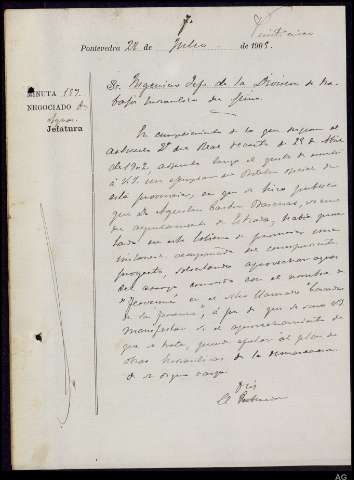 Pontevedra 22 de Julio de 1905.
MINUTA 157.
NEGOCIADO de
Aguas.
Jefatura
Sr. Ingeniero Jefe de la Division de Tra-
bajos hidraulicos del Miño.
En cumplimiento de lo que dispone el
articulo 2º del Real decreto de 25 de Abril
de 1902, adjunto tengo el gusto de remitir
á V.S. un ejemplar del Boletin oficial de
esta provincia, en que se hizo publico
que Dn Agustin vecino
del ayuntamiento de Estrada, había presen-
tado en este Gobierno de provincia una
instancia acompañada del correspondiente
proyecto, solicitando aprovechar aguas
del arroyo conocido con el nombre de
en el sitio llamado
á fin de que se sirva V.S.
manifestar si el aprovechamiento de
que se trata, puede afectar al plan de
obras hidraulicas de la demarcacion
de su digno cargo.
Dios
El Gobernador
AG